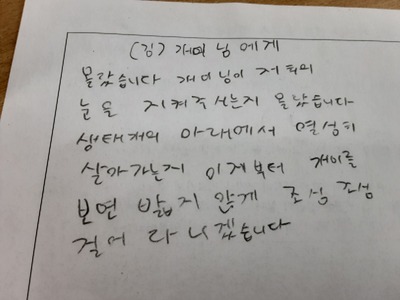 (김) 개미 님에게
몰랐습니다 개미님이 저희의
눈을 지켜주시는지 몰랐습니다
생태계의 아래에서 열심히
살아가는지 이제부터 개미를
보면 밟지 않게 조심 조심
걸어 다니겠습니다